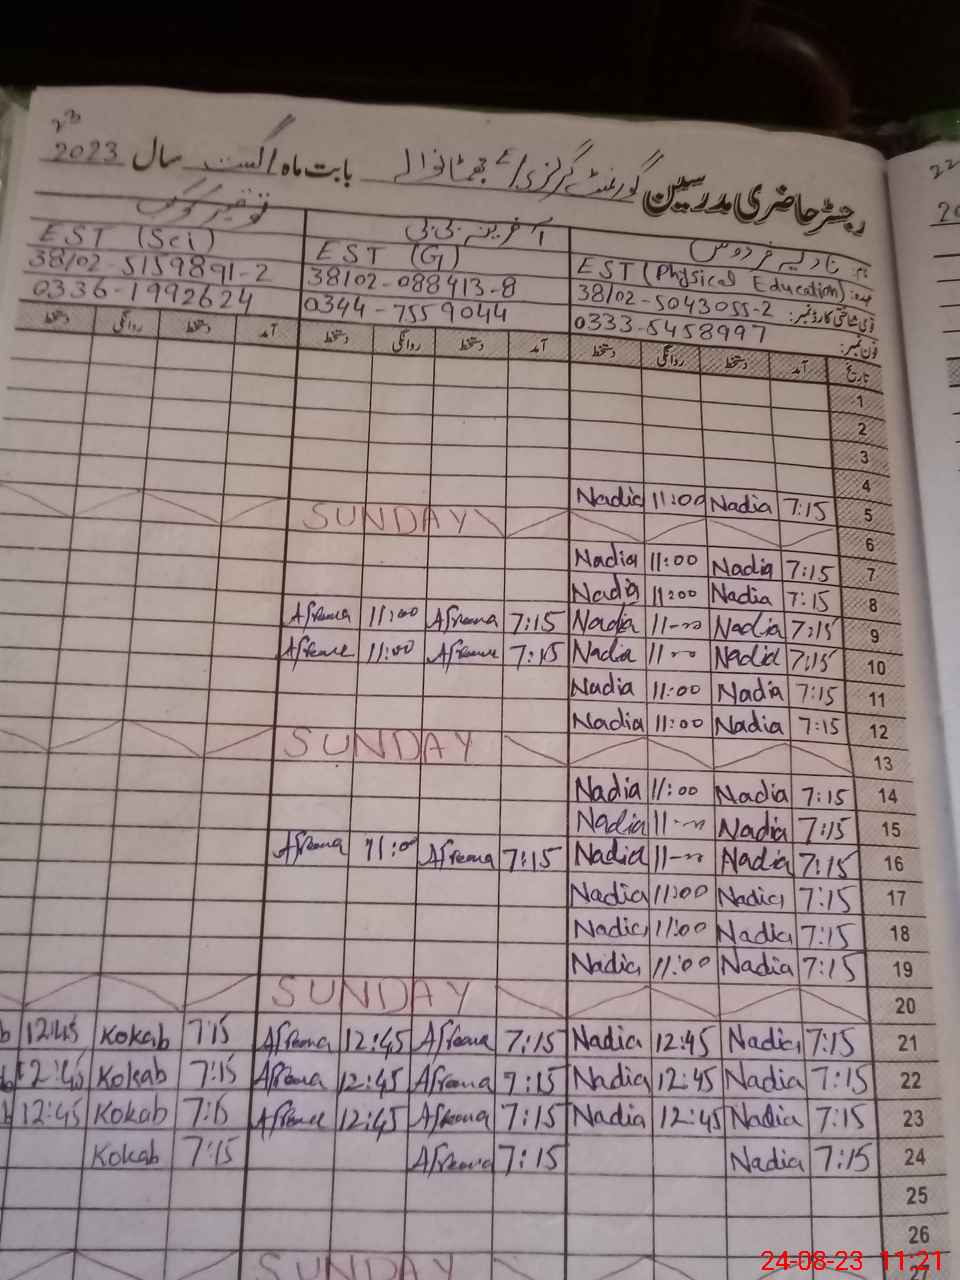 ۲۳
رجسٹر حاضری مدرسین گورنمنٹ گرلز بابت ماہ اگست سال 2023
نام: نادیہ فردوس آفرینہ بی بی توقیر کوکب
عہدہ: EST (Physical Education) EST (G) EST (Sci)
قومی شناختی کارڈ نمبر: 38102-5043055-2 38102-088413-8 38102-5159891-2
فون نمبر: 0333-5458997 0344-7559044 0336-1992624
تاریخ آمد دستخط روانگی دستخط آمد دستخط روانگی دستخط آمد دستخط روانگی دستخط
1
2
3
4
5 7:15 Nadia 11:00 Nadia
SUNDAY
6
7 7:15 Nadia 11:00 Nadia
8 7:15 Nadia 11:00 Nadia
9 7:15 Nadia 11-00 Nadia 7:15 Afreena 11:00 Afreena
10 7:15 Nadia 11-00 Nadia 7:15 Afreena 11:00 Afreena
11 7:15 Nadia 11:00 Nadia
12 7:15 Nadia 11:00 Nadia
13 SUNDAY
14 7:15 Nadia 11:00 Nadia
15 7:15 Nadia 11-00 Nadia
16 7:15 Nadia 11-00 Nadia 7:15 Afreena 11:00 Afreena
17 7:15 Nadia 11:00 Nadia
18 7:15 Nadia 11:00 Nadia
19 7:15 Nadia 11:00 Nadia
20 SUNDAY
21 7:15 Nadia 12:45 Nadia 7:15 Afreena 12:45 Afreena 7:15 Kokab 12:45
22 7:15 Nadia 12:45 Nadia 7:15 Afreena 12:45 Afreena 7:15 Kokab 12:45
23 7:15 Nadia 12:45 Nadia 7:15 Afreena 12:45 Afreena 7:15 Kokab 12:45
24 7:15 Nadia 7:15 Afreena 7:15 Kokab
25
26
27 SUNDAY
24-08-23 11:21